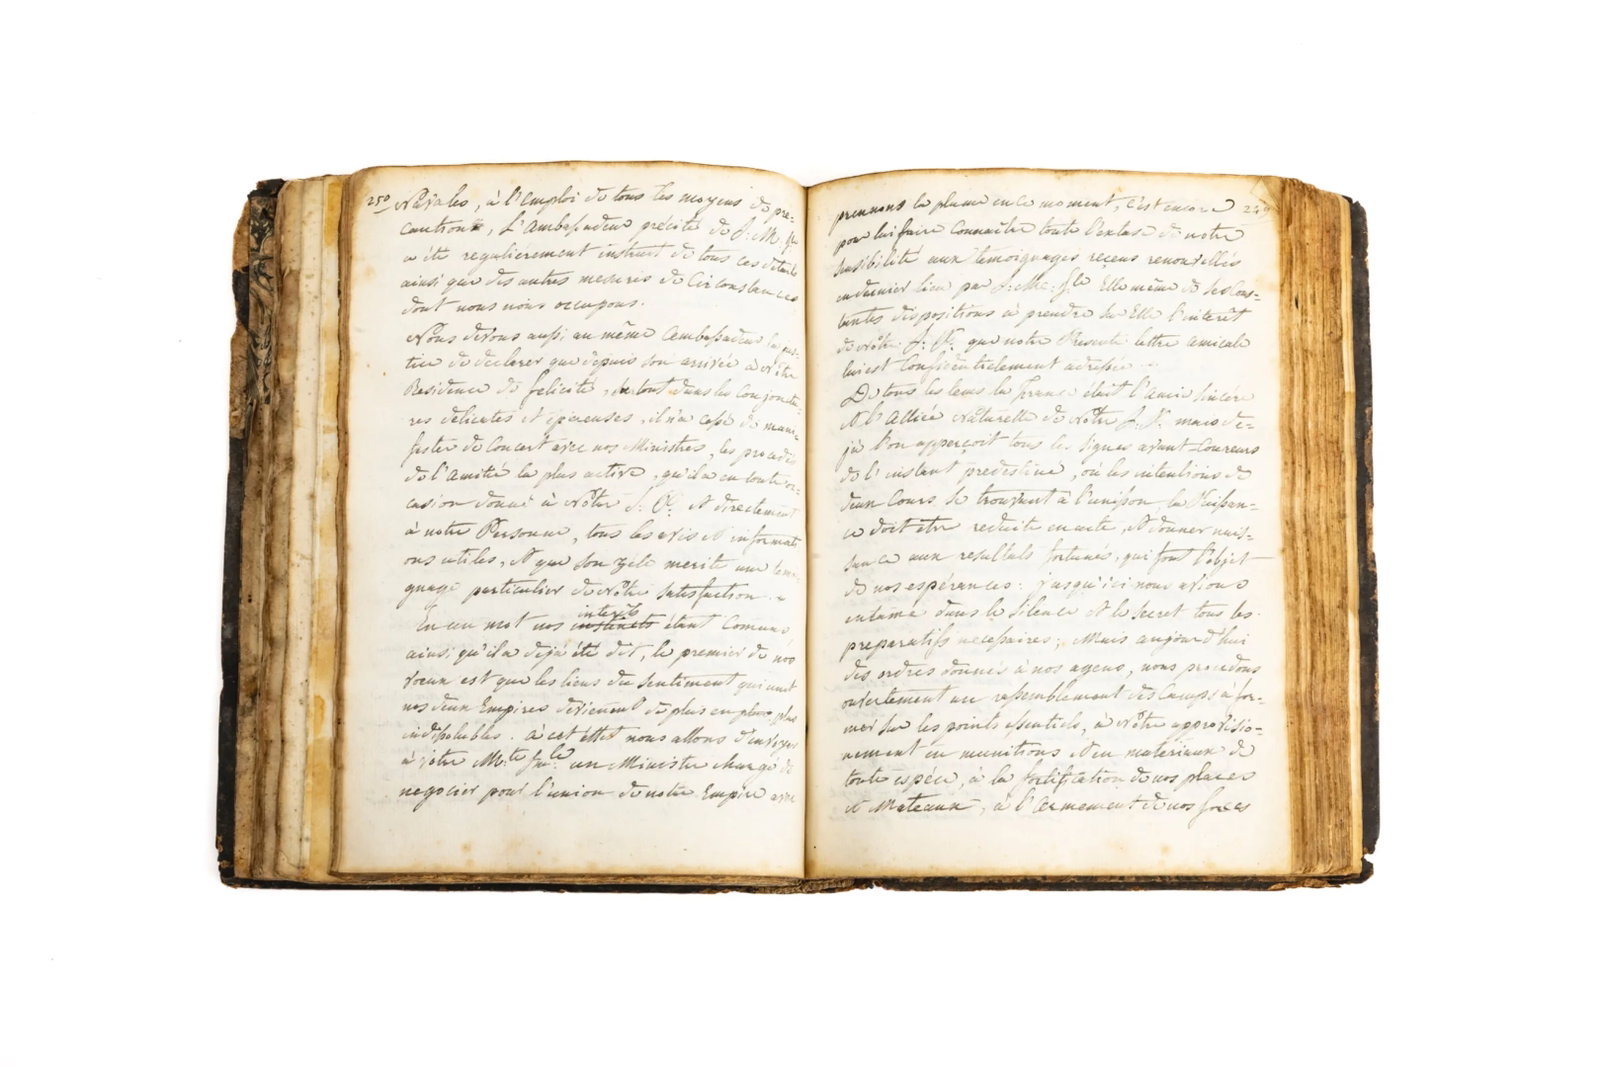 249
prennons la plume en ce moment, c'est encore
pour lui faire Connaître toute l'extase de notre
sensibilité aux témoignages reçens renouvellés
en dernier lieu par S: Me: Ile Elle même de ses Cons=
tantes dispositions à prendre Sur Elle l'interêt
de nôtre S: P. que notre Presente lettre amicale
lui est Confidentiellement adressée
De tous les tems la France était l'amie sincère
et l'Alliée Naturelle de Nôtre S. P. mais de=
jà l'on apperçoit tous les signes avant-Coureurs
de l'instant predestiné, où les intentions de
deux Cours se trouvant à l'unisson, la Puissan=
ce doit être reduite en acte, et donner nais=
sance aux resultats fortunés, qui font l'objet
de nos espérances: jusqu'ici nous avions
entamé dans le Silence et le Secret tous les
preparatifs necessaires; Mais aujourd'hui
des ordres donnés à nos agens, nous procedons
ouvertement au rassemblement des Camps à for=
mer sur les points essentiels, à nôtre approvisio=
nement en munitions et en materiaux de
toute espéce, à la fortification de nos places
et Chateaux, à l'armement de nos forces
250
Navales, à l'emploi de tous les moyens de pre=
caution, L'ambassadeur précité de S. M. Ile
a été regulièrement instruit de tous ces détails
ainsi que des autres mesures de Circonstances
dont nous nous occupons.
Nous devons aussi au même Ambassadeur la jus=
tice de declarer que depuis son arrivée à Nôtre
Residence de felicité, surtout dans les Conjonctu=
res délicates et épineuses, il n'a cessé de mani=
fester de Concert avec nos Ministres, les procedés
de l'amitié la plus active, qu'il a en toute oc=
casion donné à Nôtre S. P. et directement
à notre Personne, tous les avis et informati
ons utiles, et que son zèle merite un temoi=
gnage particulier de nôtre satisfaction.
En un mot nos instincts interêts étant Comuns,
ainsi qu'il a déjà été dit, le premier de nos
voeux est que les liens du sentiment qui unit
nos deux Empires deviennent de plus en plus
indissolubles. à cet effet nous allons d'envoyer
à vôtre M:te Im:le un Ministre chargé de
negocier pour l'union de notre Empire avec